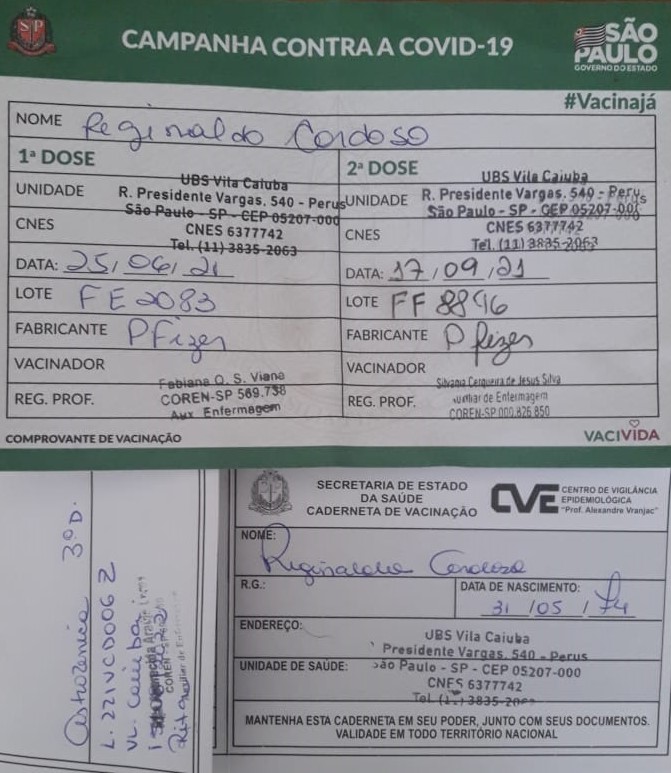 SP
CAMPANHA CONTRA A COVID-19
SÃO
PAULO
GOVERNO DO ESTADO
#Vacinajá
NOME Reginaldo Cardoso
1ª DOSE
UNIDADE UBS Vila Caiuba
R. Presidente Vargas, 540 - Perus
São Paulo - SP - CEP 05207-000
CNES CNES 6377742
Tel. (11) 3835-2063
DATA: 25/06/21
LOTE FE2083
FABRICANTE Pfizer
VACINADOR
Fabiana O. S. Viana
REG. PROF. COREN-SP 569.738
Aux Enfermagem
2ª DOSE
UNIDADE UBS Vila Caiuba
R. Presidente Vargas, 540 - Perus
São Paulo - SP - CEP 05207-000
CNES CNES 6377742
Tel. (11) 3835-2063
DATA: 17/09/21
LOTE FF8896
FABRICANTE Pfizer
VACINADOR
Silvania Cerqueira de Jesus Silva
REG. PROF. Auxiliar de Enfermagem
COREN-SP 000.826.850
COMPROVANTE DE VACINAÇÃO
VACIVIDA
Astrazenica 3ª D.
L. 221VCD006Z
VL. Caiuba
COREN
Auxiliar de
SECRETARIA DE ESTADO
DA SAÚDE
CADERNETA DE VACINAÇÃO
CVE
CENTRO DE VIGILÂNCIA
EPIDEMIOLÓGICA
"Prof. Alexandre Vranjac"
NOME:
Reginaldo Cardoso
R.G.:
DATA DE NASCIMENTO:
31/05/74
ENDEREÇO:
UBS Vila Caiuba
Presidente Vargas, 540 - Perus
UNIDADE DE SAÚDE: São Paulo - SP - CEP 05207-000
CNES 6377742
Tel. (11) 3835-2063
MANTENHA ESTA CADERNETA EM SEU PODER, JUNTO COM SEUS DOCUMENTOS.
VALIDADE EM TODO TERRITÓRIO NACIONAL